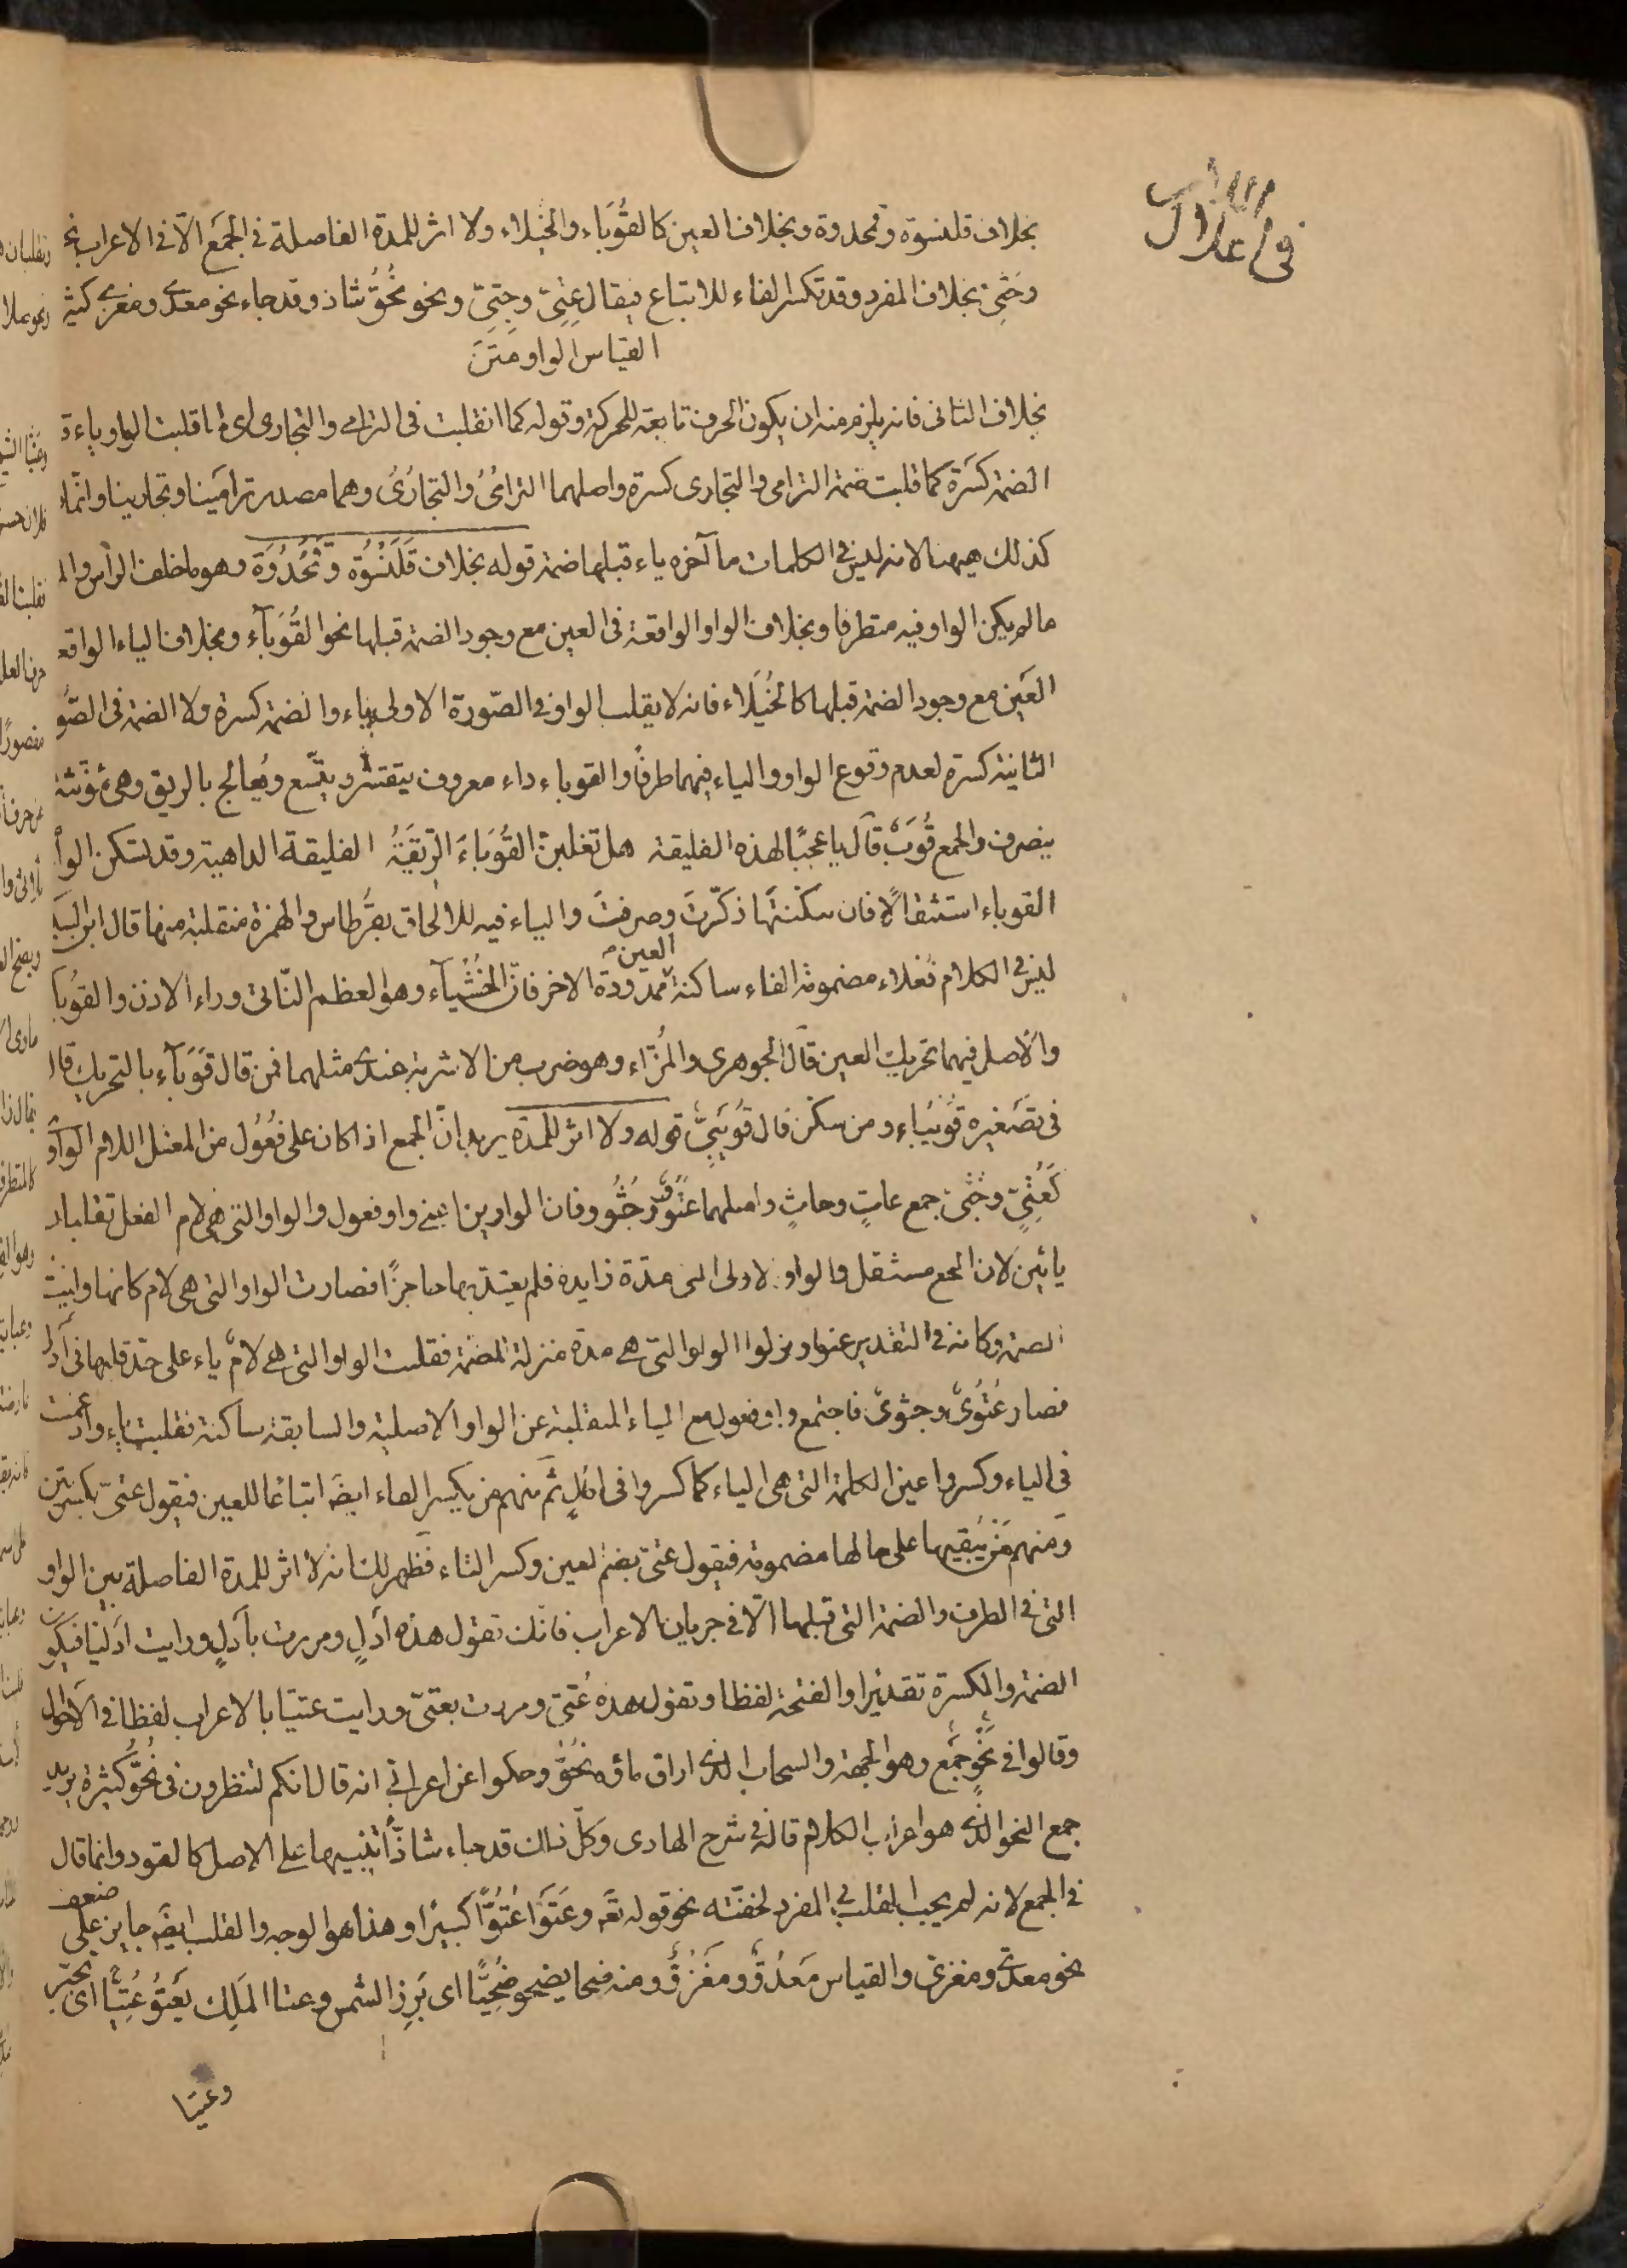 في اعلال
بخلاف قلنسوة وقمحدوة وبخلاف العين كالقُوَبَاء والخيلاء ولا اثر للمدة الفاصلة فى الجمع الّا فى الاعراب نحو
وجثىّ بخلاف المفرد وقد تكسر الفاء للاتباع فيقال عِتِىّ وجِثِىّ ونحو نُحُوّ شاذ وقد جاء نحو معدى ومغزى كثيرا
القياس الواو متن
بخلاف الثانى فانه يلزم منه ان يكون الحرف تابعة للحركة وقوله كما انقلبت فى الترامى والتجارى اى قلبت الواو ياء و
الضمة كسرة كما قلبت ضمة الترامى والتجارى كسرة واصلهما الترامُىُ والتجارُىُ وهما مصدر ترامَينا وتجارينا وانما
كذلك هيهنا لانه ليس فى الكلمات ما آخره ياء قبلها ضمة قوله بخلاف قَلَنْسُوَة وقَمَحْدُوَة وهو ما خلف الرأس
مالم يكن الواو فيه متطرفا وبخلاف الواو الواقعة فى العين مع وجود الضمة قبلها نحو القُوَبآء وبخلاف الياء الواقعة
العَين مع وجود الضمة قبلها كالخُيَلَاء فانه لا يقلب الواو فى الصّورة الاولى ياء والضمة كسرة ولا الضمة فى الصّو
الثانية كسرة لعدم وقوع الواو والياء فيهما طرفًا والقوباء داء معروف يتقشر ويتّسع ويُعالج بالريق وهى مؤنثة
ينصرف والجمع قُوَبٌ قال يا عجبًا لهذه الفليقة هل تغلبنّ القُوَباءَ الرّيقَةُ الفليقة الداهية وقد تسكن الواو
القوباء استثقالًا فان سكنتها ذكّرتَ وصرفتَ والياء فيه للالحاق بقرطاس والهمزة منقلبة منها قال ابن السكيت
ليس فى الكلام فُعْلاء مضمومة الفاء ساكنة العين ممدودة الاخر فانّ الخُشّاء وهو العظم النّاتى وراء الاذن والقُوبا
والأصل فيهما تحريك العين قال الجوهرى والمُزّاء وهو ضرب من الاشربة عندى مثلهما فمن قال قُوَبآء بالتحريك قال
فى تصغيره قُوَيباء ومن سكّن قال قُوَيبىّ قوله ولا اثر للمدة يريد انّ الجمع اذا كان على فُعُول من المعتل اللام الواو
كَعُتِىّ وجُثىّ جمع عاتٍ وجاثٍ واصلهما عُتُوّ وجُثُوّ فان الواوين اعنى واو فعول والواو التى هى لام الفعل تقلبان
يائين لان الجمع مستثقل والواو الاولى التى مدّة زايدة فلم يعتدّ بها حاجزًا فصارت الواو التى هى لام كانها وليت
الضمة وكانه فى التقدير عتوا ونزلوا الواو التى هى مدة منزلة الضمة فقلبت الواو التى هى لامٌ ياء على حدّ قلبها فى أدلٍ
فصار عُتُوىٌ وجثوىٌ فاجتمع واو فعول مع الياء المنقلبة عن الواو الاصلية والسابقة ساكنة فقلبت ياء وادغمت
فى الياء وكسروا عين الكلمة التى هى الياء كما كسروا فى ادلٍ ثم منهم من يكسر الفاء ايضَ اتباعًا للعين فيقول عِتىّ بكسرتين
ومنهم مَن يُبْقيها على حالها مضمومة فيقول عتىّ بضم العين وكسر التاء فظهر لك انه لا اثر للمدة الفاصلة بين الواو
التى فى الطرف والضمة التى قبلها الّا فى جريان الاعراب فانك تقول هذه أدلٍ ومررت بأدلٍ ورايت ادليًا فيكون
الضمة والكسرة تقديرا والفتحة لفظا وتقول هذه عُتىّ ومررت بعتىّ ورايت عتيّا بالاعراب لفظا فى الاحوال
وقالوا فى نَحْوٍ جمع وهو الجهة والسحاب الذى اراق ماؤه نُحُوٌّ وحكوا عن اعرابى انه قال انكم لتنظرون فى نُحُوٍّ كثيرة يريد
جمع النحو الذى هو اعراب الكلام قاله فى شرح الهادى وكلّ ذلك قد جاء شاذّا تنبيها على الاصل كالقود وانما قال
فى الجمع لانه لم يجب القلب فى المفرد لخفّته نحو قوله تعَ وعَتَوا عُتُوًّا كبيرًا وهذا هو الوجه والقلب ايضَ جايز على ضعف
نحو معدىّ ومغزىّ والقياس مَعْدُوٌّ ومَغْزُوٌّ ومنه ضحا يضحو ضُحِيًّا اى بَرز الشمس وعتا المَلِك يَعتُو عُتِيًّا اى تجبّر
وعتيا